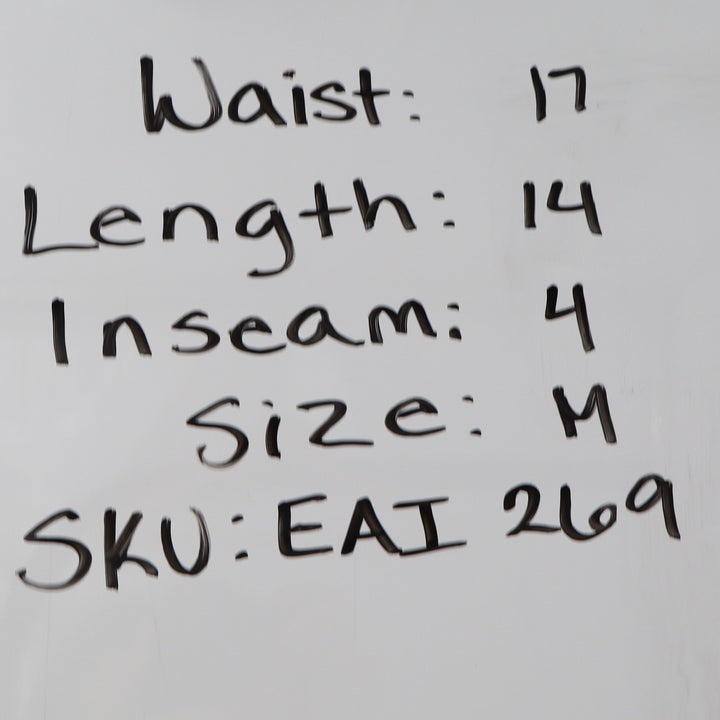 Waist: 17
Length: 14
Inseam: 4
Size: M
SKU: EAI 269